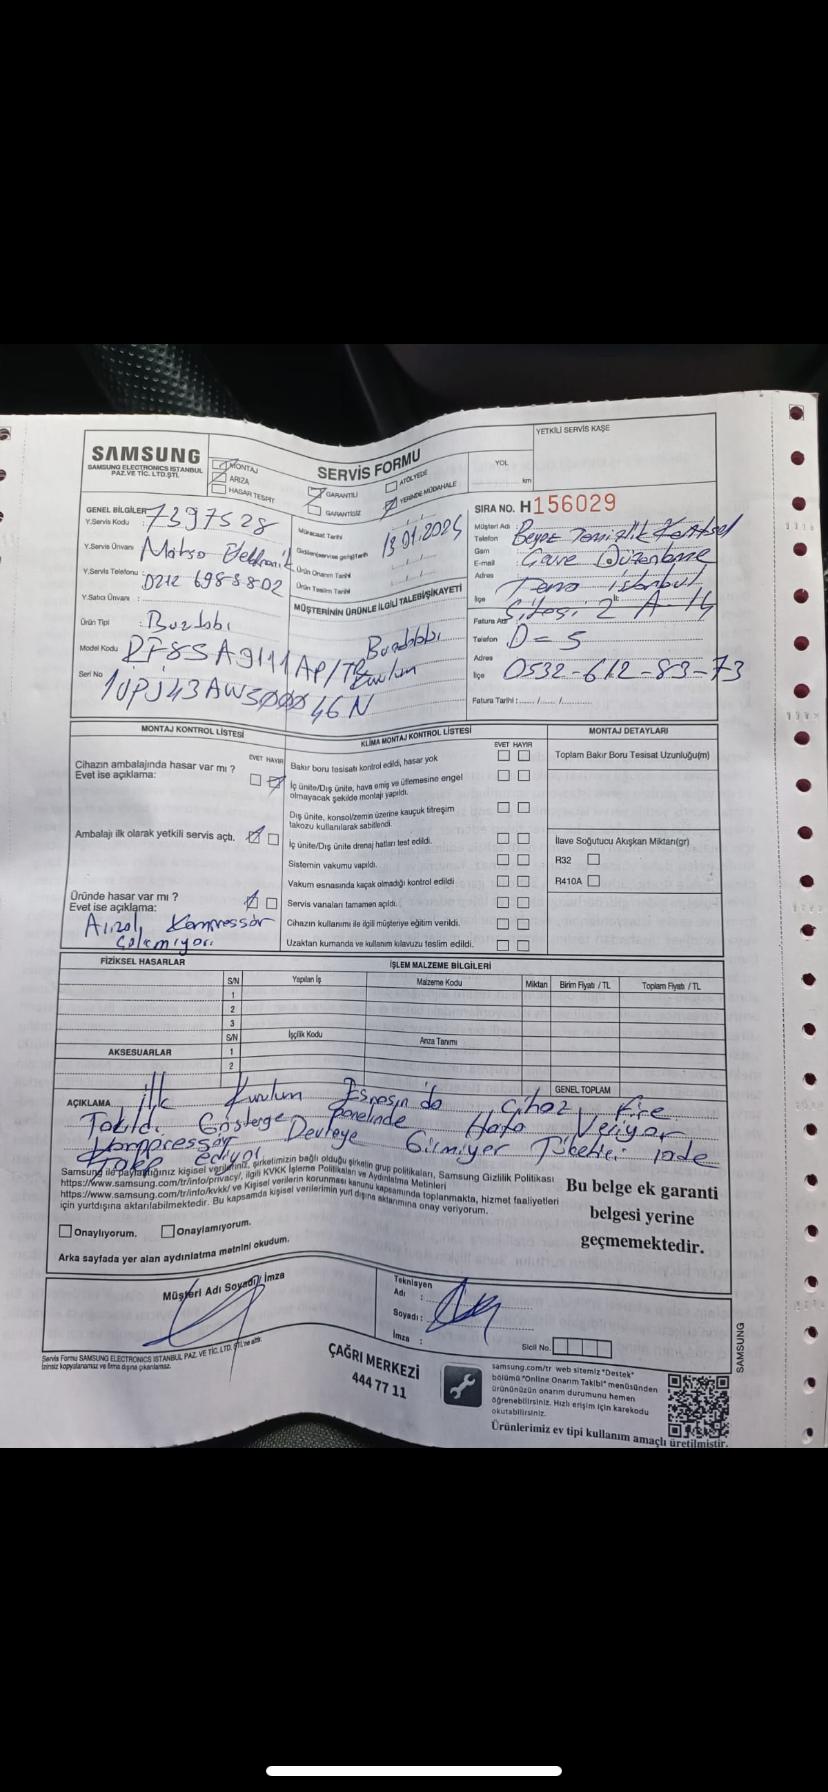 SAMSUNG
SAMSUNG ELECTRONICS ISTANBUL
PAZ.VE TİC. LTD.ŞTİ.
MONTAJ
ARIZA
HASAR TESPİT
SERVİS FORMU
GARANTİLİ
GARANTİSİZ
ATÖLYEDE
YERİNDE MÜDAHALE
YOL
km
YETKİLİ SERVİS KAŞE
GENEL BİLGİLER
Y.Servis Kodu : 7397528
Y.Servis Ünvanı
Y.Servis Telefonu : 0212 6983802
Y.Satıcı Ünvanı :
Ürün Tipi : Buzdobı
Model Kodu RF85A9111AP/TR
Seri No
Müracaat Tarihi
13.01.2025
Ürün Onarım Tarihi
Ürün Teslim Tarihi
MÜŞTERİNİN ÜRÜNLE İLGİLİ TALEBİ/ŞİKAYETİ
Buzdobbı
Kurulum
SIRA NO. H156029
Müşteri Adı : Beyaz Temizlik
Telefon
Gsm
E-mail
Adres
istanbul
İlçe
Sitesi 2 A-14
Fatura Adı
Telefon D=5
Adres
İlçe 0532-612-83-73
Fatura Tarihi : ...... / ...... / ......
MONTAJ KONTROL LİSTESİ
EVET HAYIR
Cihazın ambalajında hasar var mı ?
Evet ise açıklama:
Ambalajı ilk olarak yetkili servis açtı.
Üründe hasar var mı ?
Evet ise açıklama:
Kompressör
KLİMA MONTAJ KONTROL LİSTESİ
EVET HAYIR
Bakır boru tesisatı kontrol edildi, hasar yok
İç ünite/Dış ünite, hava emiş ve üflemesine engel
olmayacak şekilde montajı yapıldı.
Dış ünite, konsol/zemin üzerine kauçuk titreşim
takozu kullanılarak sabitlendi.
İç ünite/Dış ünite drenaj hatları test edildi.
Sistemin vakumu yapıldı.
Vakum esnasında kaçak olmadığı kontrol edildi
Servis vanaları tamamen açıldı.
Cihazın kullanımı ile ilgili müşteriye eğitim verildi.
Uzaktan kumanda ve kullanım kılavuzu teslim edildi.
MONTAJ DETAYLARI
Toplam Bakır Boru Tesisat Uzunluğu(m)
İlave Soğutucu Akışkan Miktarı(gr)
R32
R410A
FİZİKSEL HASARLAR
İŞLEM MALZEME BİLGİLERİ
S/N Yapılan İş Malzeme Kodu Miktarı Birim Fiyatı / TL Toplam Fiyatı / TL
1
2
3
S/N İşçilik Kodu Arıza Tanımı
AKSESUARLAR
1
2
GENEL TOPLAM
AÇIKLAMA ilk Kurulum Esnasın'da cihaz Fire
Takıldı Gösterge panelinde Hata Veriyor
Kompressör Devreye Girmiyer Tüketici iade
Talep ediyor
Samsung ile paylaştığınız kişisel verileriniz, şirketimizin bağlı olduğu şirketin grup politikaları, Samsung Gizlilik Politikası
https://www.samsung.com/tr/info/privacy/, ilgili KVKK İşleme Politikaları ve Aydınlatma Metinleri
https://www.samsung.com/tr/info/kvkk/ ve Kişisel verilerin korunması kanunu kapsamında toplanmakta, hizmet faaliyetleri
için yurtdışına aktarılabilmektedir. Bu kapsamda kişisel verilerimin yurt dışına aktarımına onay veriyorum.
Onaylıyorum. Onaylamıyorum.
Arka sayfada yer alan aydınlatma metnini okudum.
Bu belge ek garanti
belgesi yerine
geçmemektedir.
Müşteri Adı Soyadı/ İmza
Teknisyen
Adı :
Soyadı :
İmza :
Sicil No.
Servis Formu SAMSUNG ELECTRONICS ISTANBUL PAZ. VE TİC. LTD. ŞTİ.'ne aittir.
İzinsiz kopyalanamaz ve firma dışına çıkarılamaz.
ÇAĞRI MERKEZİ
444 77 11
samsung.com/tr web sitemiz "Destek"
bölümü "Online Onarım Takibi" menüsünden
ürününüzün onarım durumunu hemen
öğrenebilirsiniz. Hızlı erişim için karekodu
okutabilirsiniz.
Ürünlerimiz ev tipi kullanım amaçlı üretilmiştir.
SAMSUNG